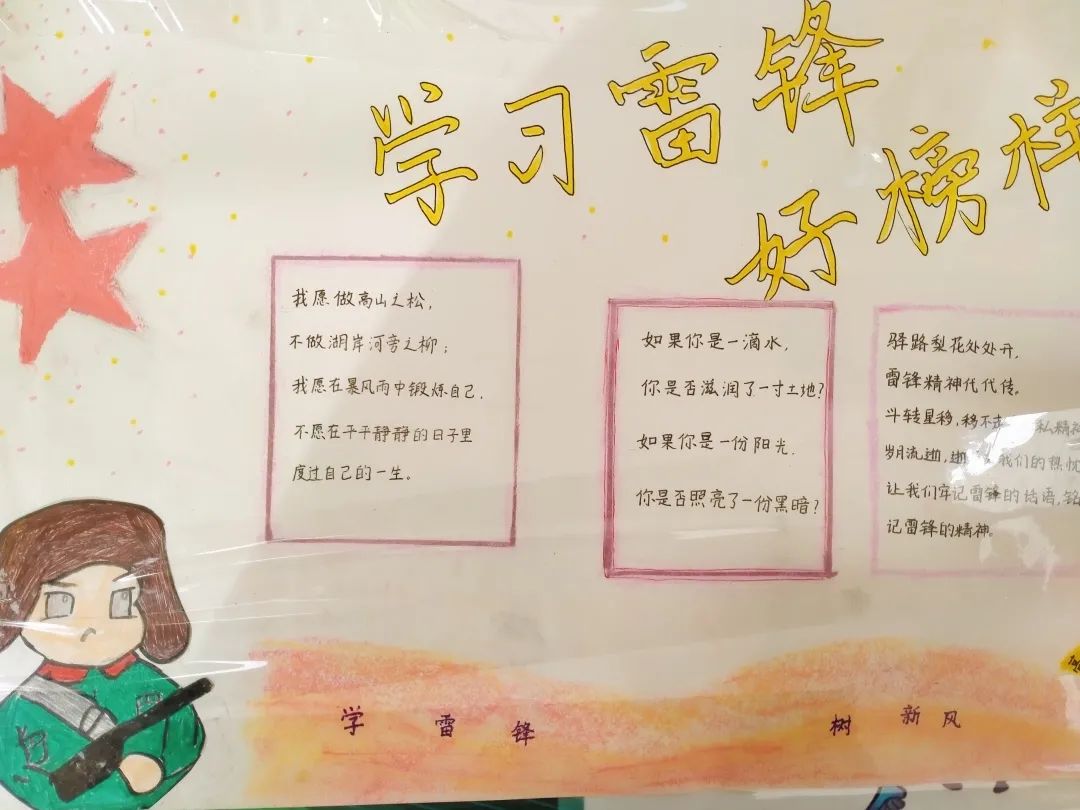 学习雷锋
好榜样
我愿做高山之松，
不做湖岸河旁之柳；
我愿在暴风雨中锻炼自己，
不愿在平平静静的日子里
度过自己的一生。
如果你是一滴水，
你是否滋润了一寸土地？
如果你是一份阳光，
你是否照亮了一份黑暗？
驿路梨花处处开，
雷锋精神代代传。
斗转星移，移不走 私精神
岁月流逝，逝 我们的热忱
让我们牢记雷锋的话语，铭
记雷锋的精神。
学雷锋 树新风